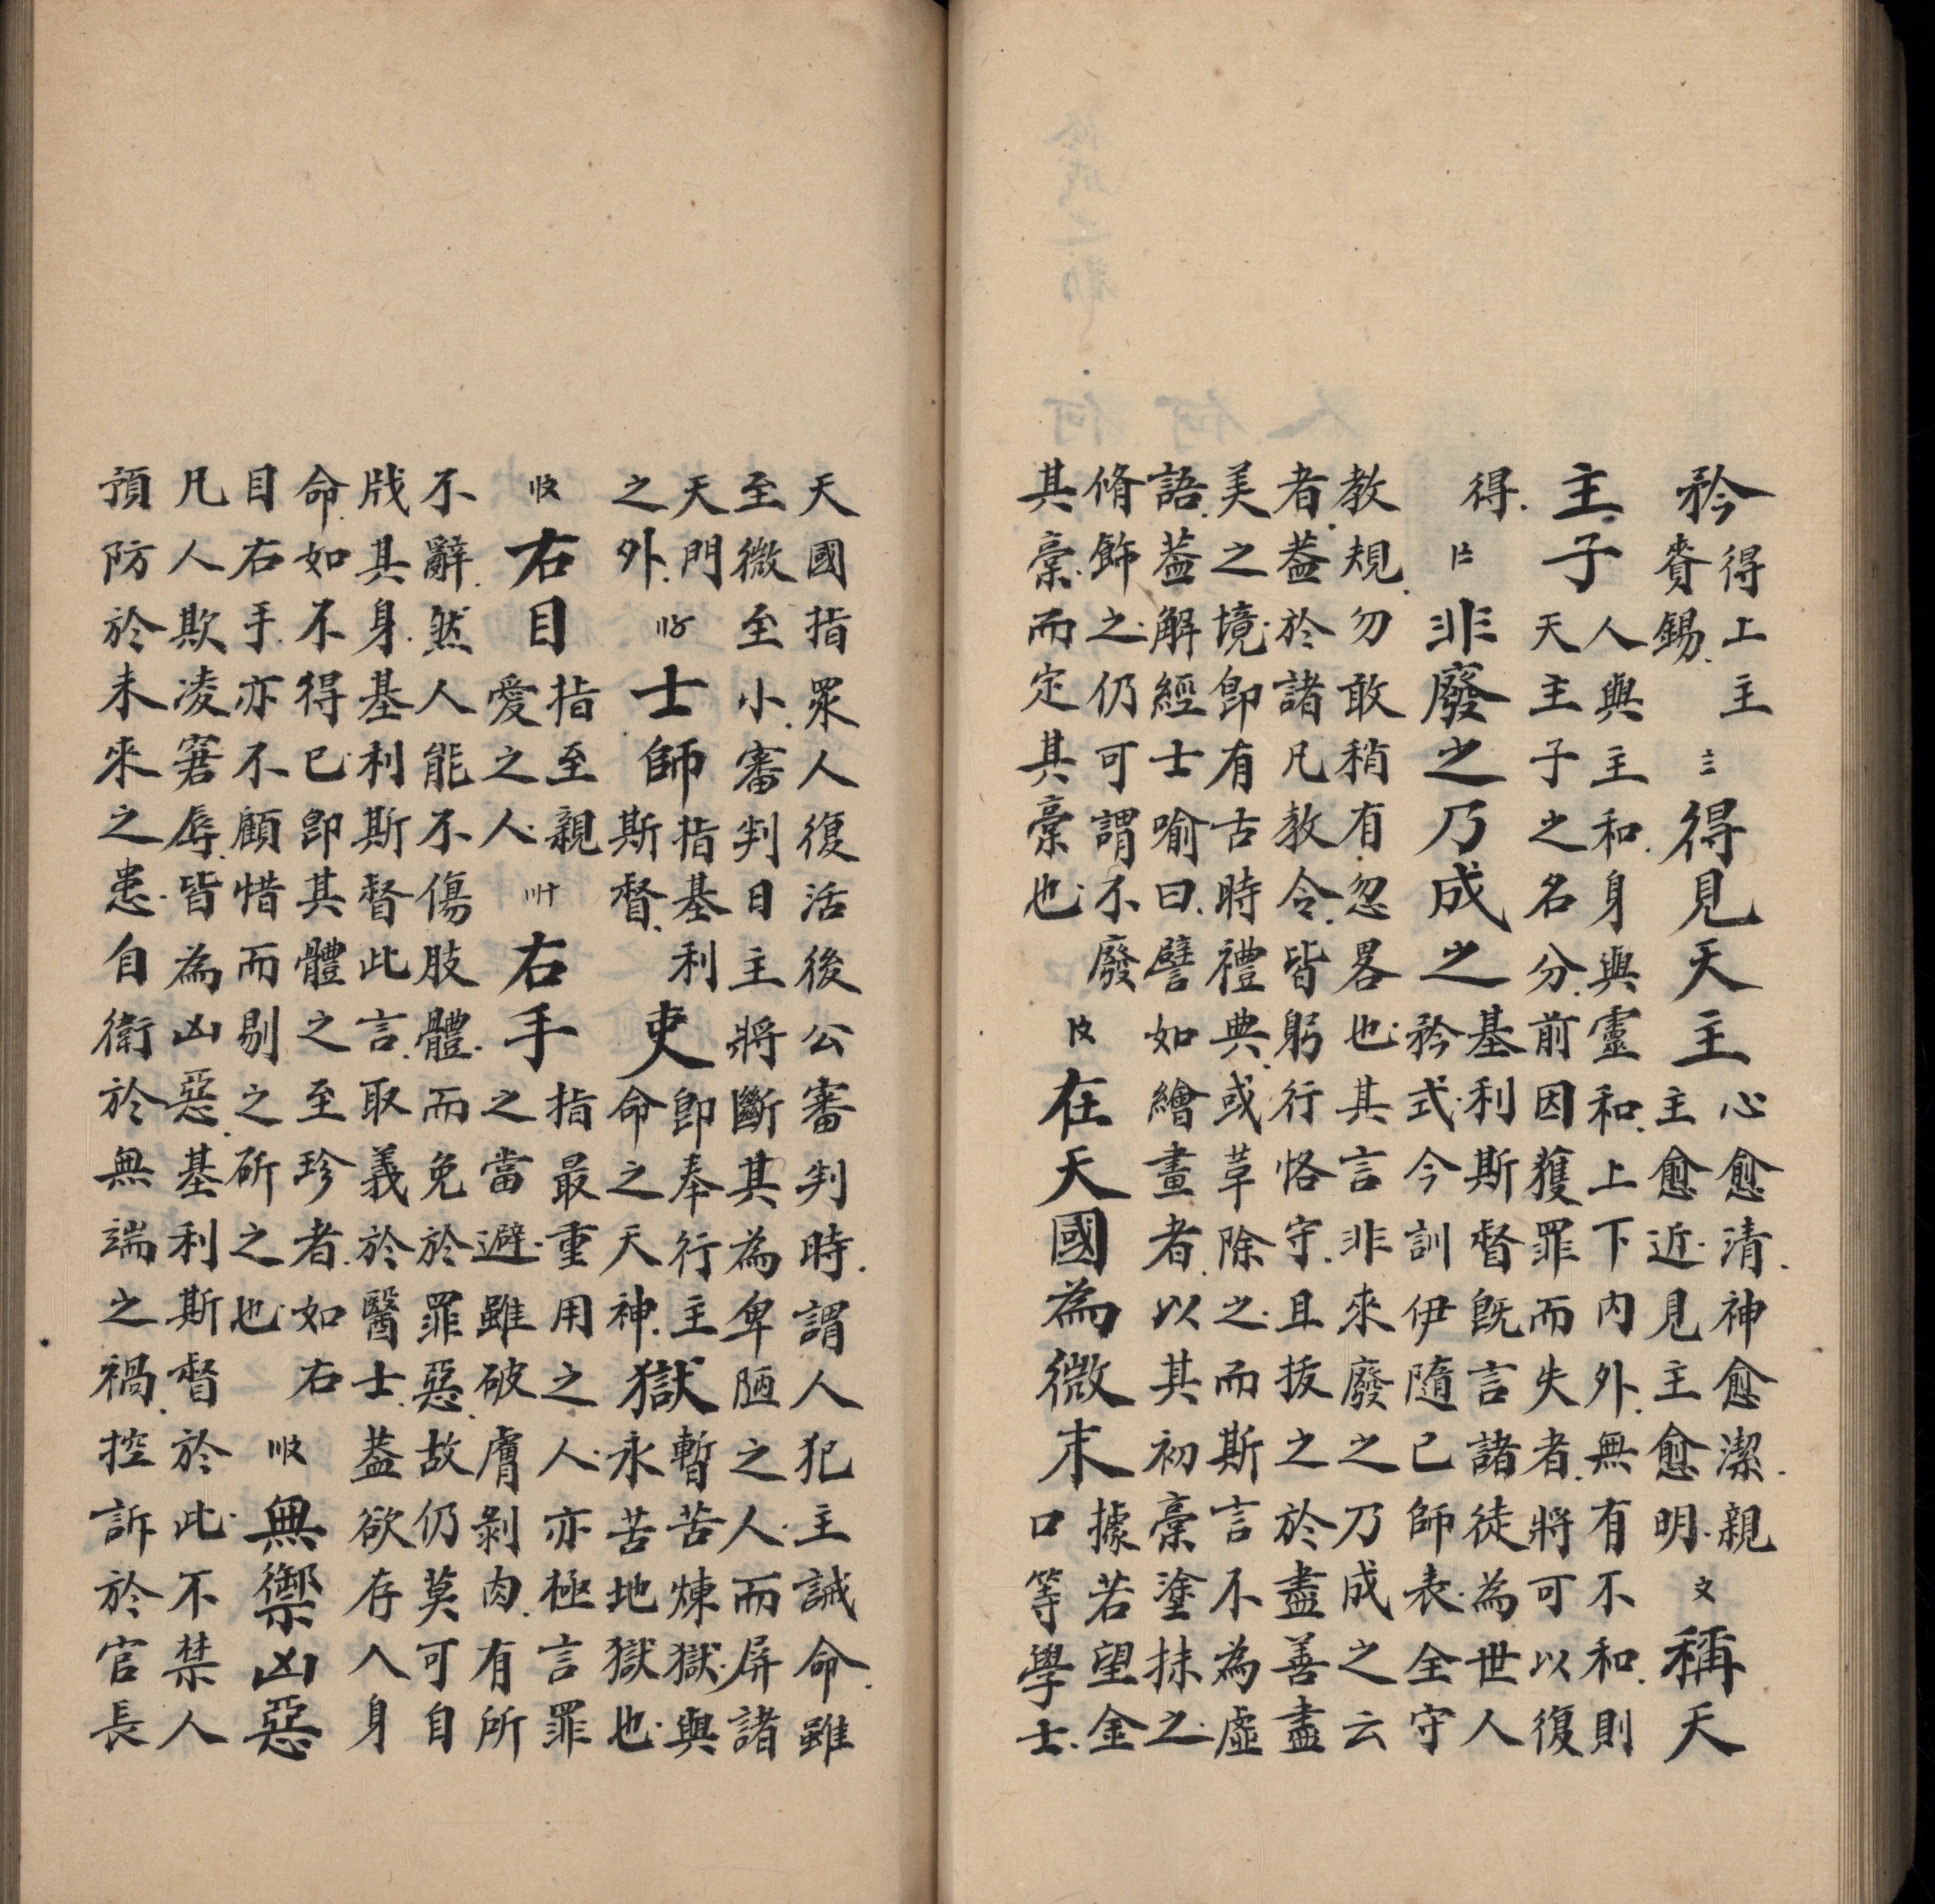 矜得上主賚錫〨得見天主心愈清神愈潔親主愈近見主愈明〩稱天
主子人與主和身與靈和上下內外無有不和則天主子之名分前因獲罪而失者將可以復
得〡〧非廢之乃成之基利斯督既言諸徒為世人矜式今訓伊隨已師表全守
教規勿敢稍有忽畧也其言非來廢之乃成之云
者葢於諸凡教令皆躬行恪守且拔之於盡善盡
美之境即有古時禮典或革除之而斯言不為虛
語葢解經士喻曰譬如繪畫者以其初稾塗抹之
脩飾之仍可謂不廢其稾而定其稾也〡〩在天國為微末據若望金口等學士
天國指眾人復活後公審判時謂人犯主誡命雖
至微至小審判日主將斷其為卑陋之人而屏諸
天門之外〢〥士師指基利斯督吏即奉行主命之天神獄暫苦煉獄與永苦地獄也
〢〩右目指至親愛之人〣十右手指最重用之人亦極言罪之當避雖破膚剝肉有所
不辭然人能不傷肢體而免於罪惡故仍莫可自
戕其身基利斯督此言取義於醫士葢欲存人身
命如不得已即其體之至珍者如右目右手亦不顧惜而剔之斫之也〣〩無禦凶惡
凡人欺凌窘辱皆為凶惡基利斯督於此不禁人
預防於未來之患自衛於無端之禍控訴於官長